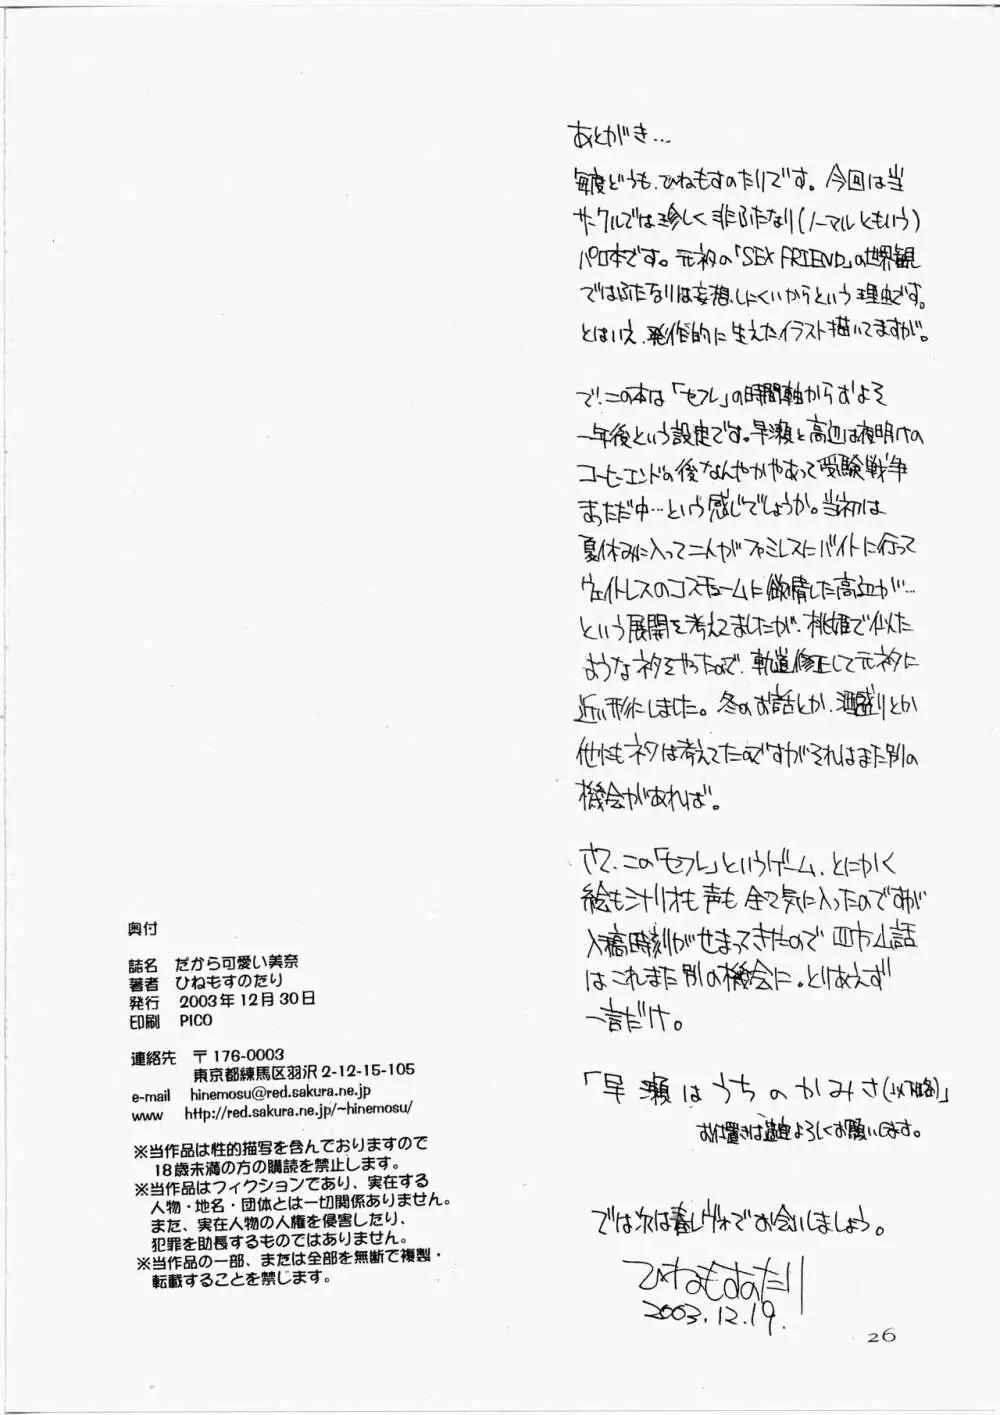 あとがき…
毎度どうも、ひねもすのたりです。今回は当
サークルでは珍しく非ふたなり(ノーマルともいう)
パロ本です。元ネタの「SEX FRIEND」の世界観
ではふたなりは妄想しにくいからという理由です。
とはいえ、発作的に生えたイラスト描いてますが。
で、この本は「セフレ」の時間軸からおよそ
一年後という設定です。早瀬と高辺は夜明けの
コーヒーエンドの後なんやかやあって受験戦争
まっただ中…という感じでしょうか。当初は
夏休みに入って二人がファミレスにバイトに行って
ウェイトレスのコスチュームに欲情した高辺が…
という展開を考えてましたが、桃姫で似た
ようなネタをやったので、軌道修正して元ネタに
近い形にしました。冬のお話とか、酒盛りとか
他にもネタは考えてたのですがそれはまた別の
機会があれば。
さて、この「セフレ」というゲーム、とにかく
絵もシナリオも声も全て気に入ったのですが
入稿時刻がせまってきたので四方山話
はこれまた別の機会に。とりあえず
一言だけ。
「早瀬はうちのかみさ(以下略)」
お仕置きは よろしくお願いします。
では次は春レヴォでお会いしましょう。
ひねもすのたり
2003.12.19.
26
奥付
誌名 だから可愛い美奈
著者 ひねもすのたり
発行 2003年12月30日
印刷 PICO
連絡先 〒176-0003
東京都練馬区羽沢2-12-15-105
e-mail hinemosu@red.sakura.ne.jp
www http://red.sakura.ne.jp/~hinemosu/
※当作品は性的描写を含んでおりますので
18歳未満の方の購読を禁止します。
※当作品はフィクションであり、実在する
人物・地名・団体とは一切関係ありません。
また、実在人物の人権を侵害したり、
犯罪を助長するものではありません。
※当作品の一部、または全部を無断で複製・
転載することを禁じます。